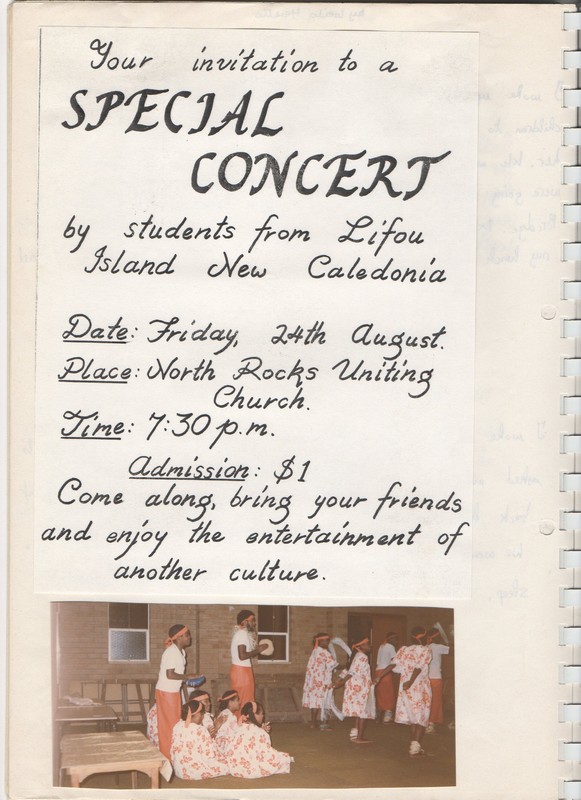 Your invitation to a
SPECIAL
CONCERT
by students from Lifou
Island New Caledonia
Date: Friday, 24th August.
Place: North Rocks Uniting
Church.
Time: 7:30 p.m.
Admission: $1
Come along, bring your friends
and enjoy the entertainment of
another culture.